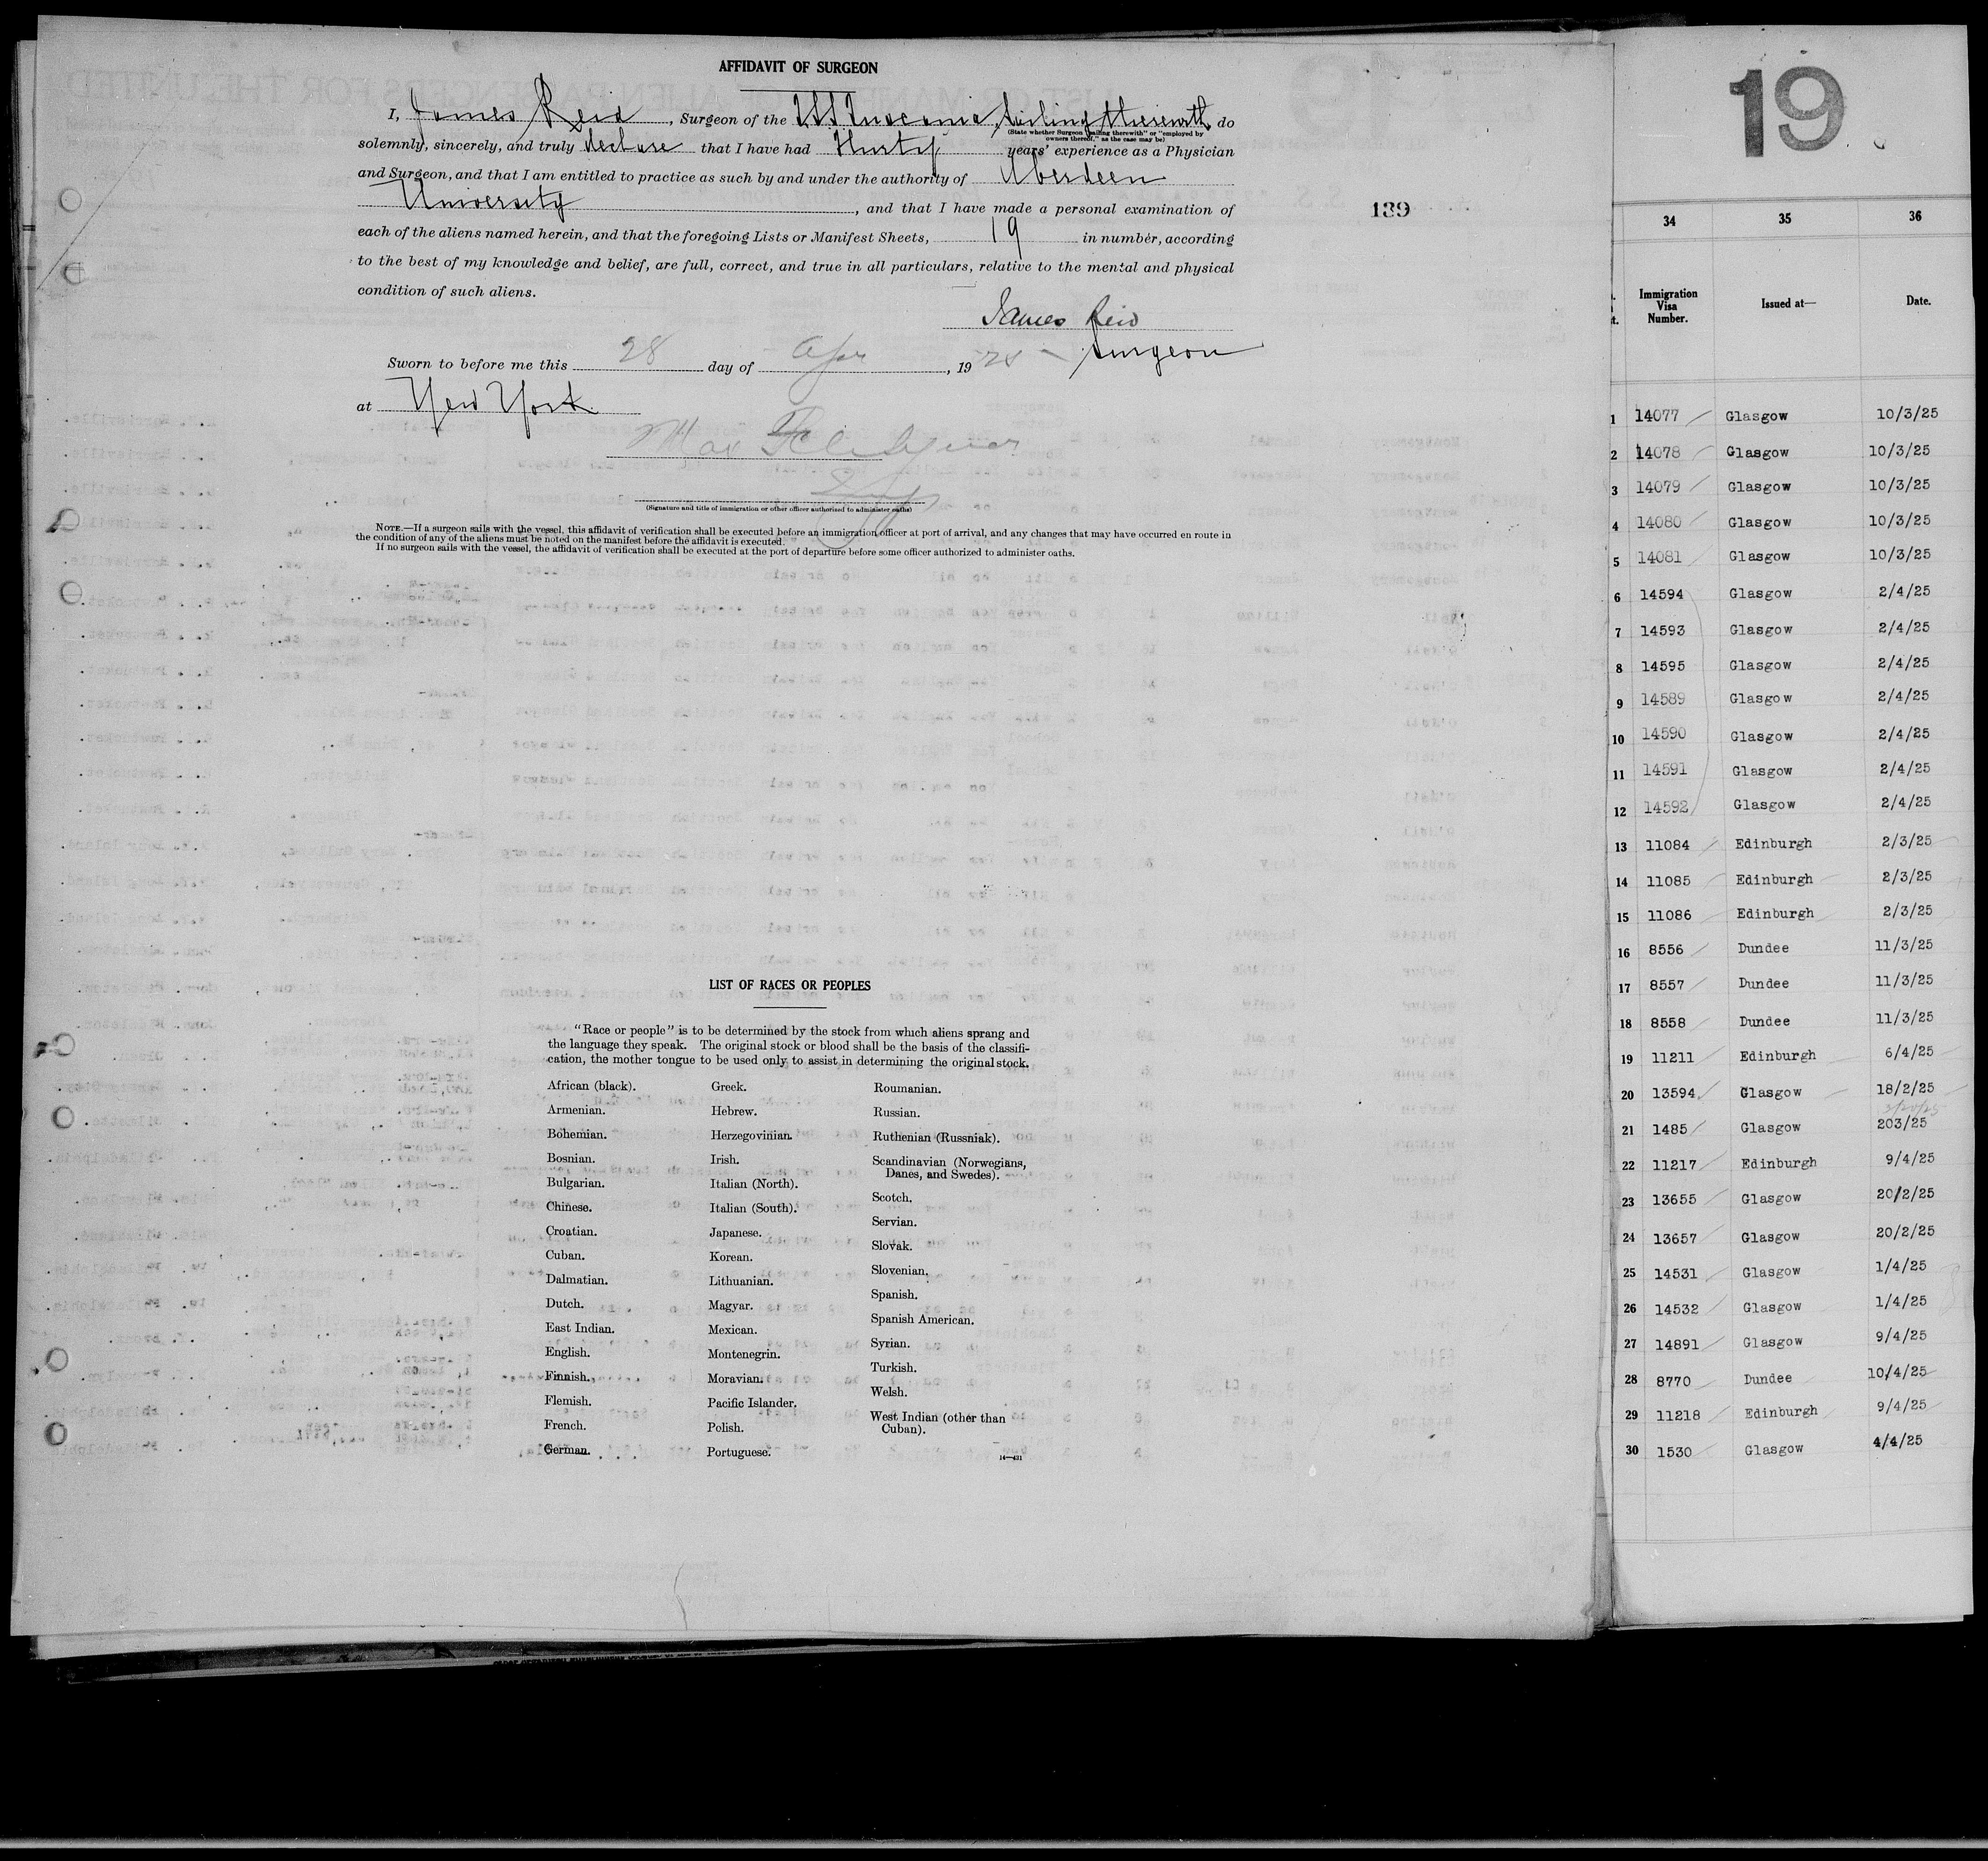 AFFIDAVIT OF SURGEON
I, James Reid, Surgeon of the TSS Tuscania, Sailing therewith do
(State whether Surgeon "sailing therewith" or "employed by
owners thereof," as the case may be)
solemnly, sincerely, and truly declare that I have had Thirty years' experience as a Physician
and Surgeon, and that I am entitled to practice as such by and under the authority of Aberdeen
University, and that I have made a personal examination of
each of the aliens named herein, and that the foregoing Lists or Manifest Sheets, 19 in number, according
to the best of my knowledge and belief, are full, correct, and true in all particulars, relative to the mental and physical
condition of such aliens.
James Reid
Surgeon
Sworn to before me this 28 day of Apr, 1925
at New York
Max
(Signature and title of immigration or other officer authorized to administer oaths)
NOTE.—If a surgeon sails with the vessel, this affidavit of verification shall be executed before an immigration officer at port of arrival, and any changes that may have occurred en route in
the condition of any of the aliens must be noted on the manifest before the affidavit is executed.
If no surgeon sails with the vessel, the affidavit of verification shall be executed at the port of departure before some officer authorized to administer oaths.
139
LIST OF RACES OR PEOPLES
"Race or people" is to be determined by the stock from which aliens sprang and
the language they speak. The original stock or blood shall be the basis of the classifi-
cation, the mother tongue to be used only to assist in determining the original stock.
African (black).
Armenian.
Bohemian.
Bosnian.
Bulgarian.
Chinese.
Croatian.
Cuban.
Dalmatian.
Dutch.
East Indian.
English.
Finnish.
Flemish.
French.
German.
Greek.
Hebrew.
Herzegovinian.
Irish.
Italian (North).
Italian (South).
Japanese.
Korean.
Lithuanian.
Magyar.
Mexican.
Montenegrin.
Moravian.
Pacific Islander.
Polish.
Portuguese.
Roumanian.
Russian.
Ruthenian (Russniak).
Scandinavian (Norwegians,
Danes, and Swedes).
Scotch.
Servian.
Slovak.
Slovenian.
Spanish.
Spanish American.
Syrian.
Turkish.
Welsh.
West Indian (other than
Cuban).
14—431
19
34 35 36
Immigration
Visa
Number.
Issued at—
Date.
1 14077 Glasgow 10/3/25
2 14078 Glasgow 10/3/25
3 14079 Glasgow 10/3/25
4 14080 Glasgow 10/3/25
5 14081 Glasgow 10/3/25
6 14594 Glasgow 2/4/25
7 14593 Glasgow 2/4/25
8 14595 Glasgow 2/4/25
9 14589 Glasgow 2/4/25
10 14590 Glasgow 2/4/25
11 14591 Glasgow 2/4/25
12 14592 Glasgow 2/4/25
13 11084 Edinburgh 2/3/25
14 11085 Edinburgh 2/3/25
15 11086 Edinburgh 2/3/25
16 8556 Dundee 11/3/25
17 8557 Dundee 11/3/25
18 8558 Dundee 11/3/25
19 11211 Edinburgh 6/4/25
20 13594 Glasgow 18/2/25
3/20/25
21 1485 Glasgow 203/25
22 11217 Edinburgh 9/4/25
23 13655 Glasgow 20/2/25
24 13657 Glasgow 20/2/25
25 14531 Glasgow 1/4/25
26 14532 Glasgow 1/4/25
27 14891 Glasgow 9/4/25
28 8770 Dundee 10/4/25
29 11218 Edinburgh 9/4/25
30 1530 Glasgow 4/4/25